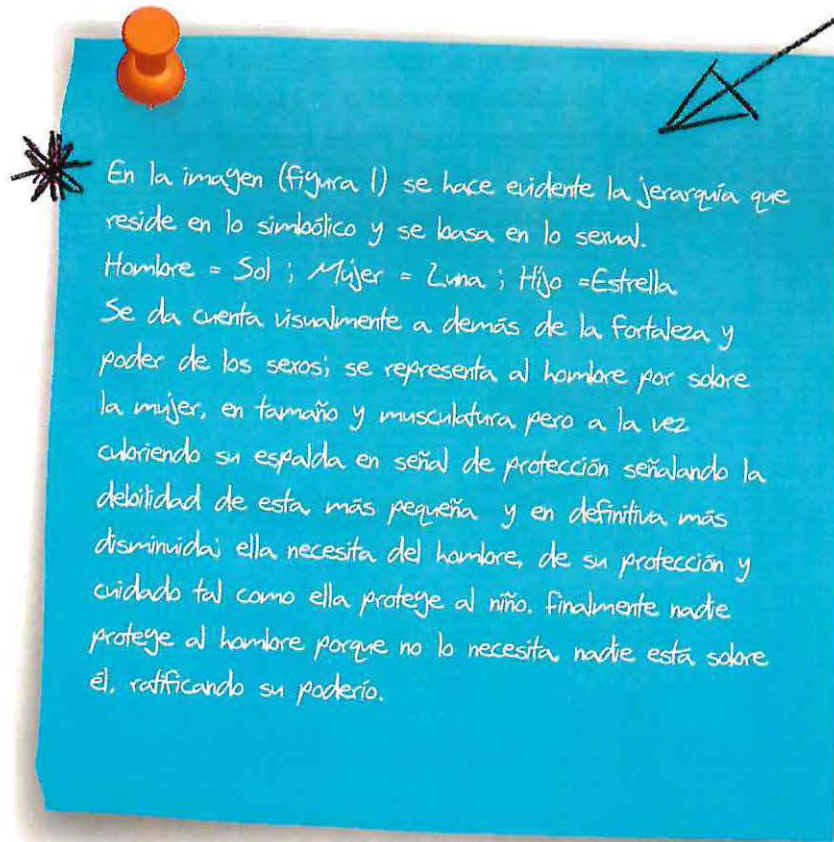 En la imagen (figura 1) se hace evidente la jerarquía que
reside en lo simbólico y se basa en lo sexual.
Hombre = Sol ; Mujer = Luna ; Hijo =Estrella
Se da cuenta visualmente a demás de la fortaleza y
poder de los sexos; se representa al hombre por sobre
la mujer, en tamaño y musculatura pero a la vez
cubriendo su espalda en señal de protección señalando la
debilidad de esta, más pequeña y en definitiva más
disminuida; ella necesita del hombre, de su protección y
cuidado tal como ella protege al niño. finalmente nadie
protege al hombre porque no lo necesita, nadie está sobre
él, ratificando su poderío.